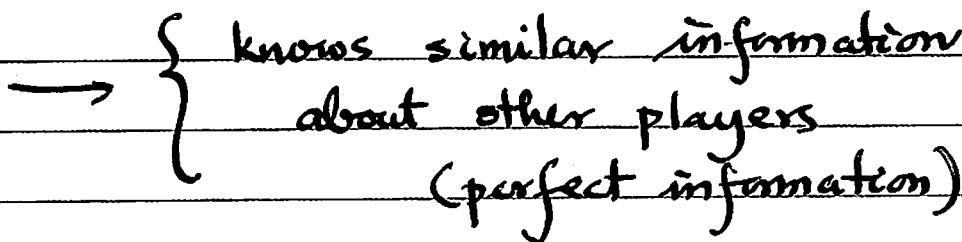 → { knows similar information
about other players
(perfect information)